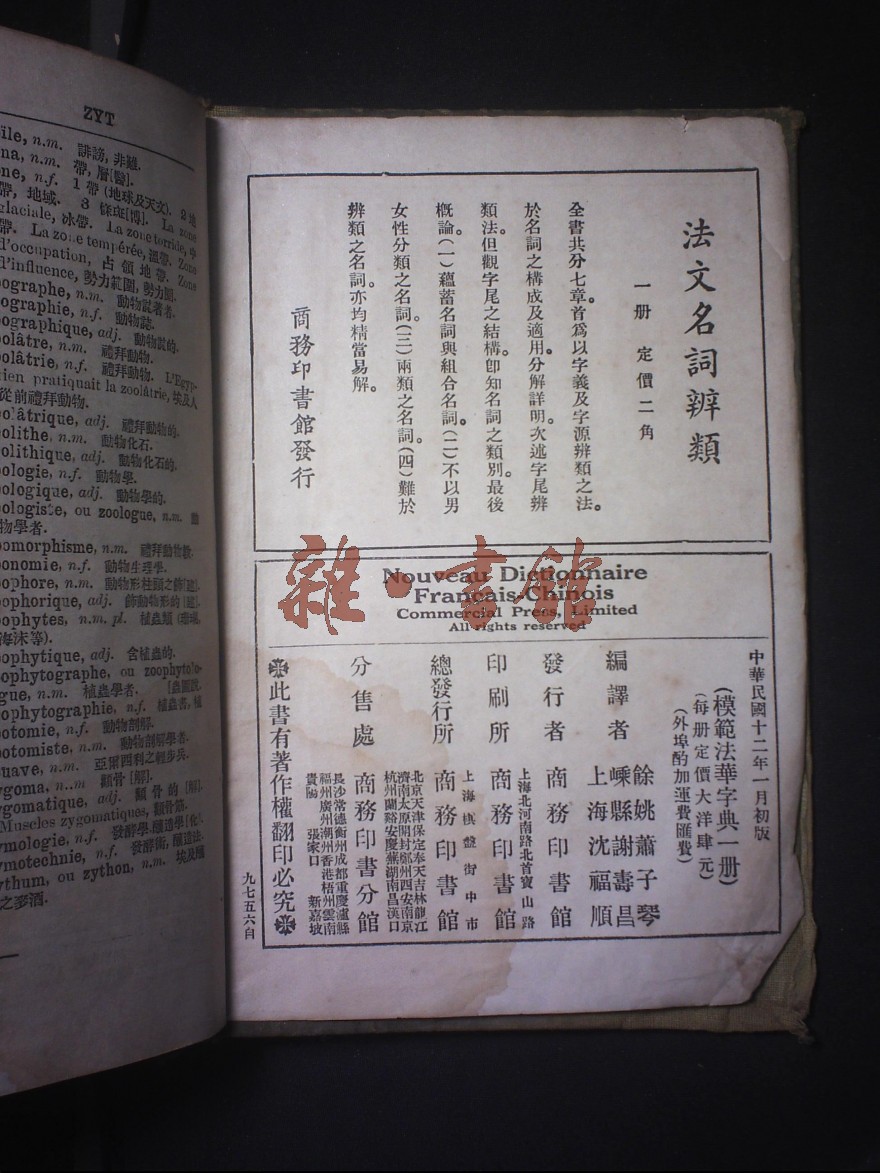 ZYT
n.m. 誹謗, 非難.
n.m. 帶, 層[醫].
n.f. 1 帶 (地球及天文). 2 地
帶, 地域. 3 條斑[博]. La zone
glaciale, 冰帶. La zone torride,
帶. La zone tempérée, 溫帶. Zone
d'occupation, 占領地帶. Zone
d'influence, 勢力範圍, 勢力圈.
ographe, n.m. 動物誌著者.
ographie, n.f. 動物誌.
ographique, adj. 動物誌的.
olâtre, n.m. 禮拜動物.
olâtrie, n.f. 禮拜動物. L'Egyp-
tien pratiquait la zoolâtrie, 埃及人
從前禮拜動物.
olâtrique, adj. 禮拜動物的.
olithe, n.m. 動物化石.
olithique, adj. 動物化石的.
ologie, n.f. 動物學.
ologique, adj. 動物學的.
ologiste, ou zoologue, n.m. 動
物學者.
omorphisme, n.m. 禮拜動物教.
onomie, n.f. 動物生理學.
ophore, n.m. 動物形柱頭之飾[建].
ophorique, adj. 飾動物形的[建].
ophytes, n.m. pl. 植蟲類 (珊瑚,
海沫等).
ophytique, adj. 含植蟲的.
ophytographe, ou zoophytolo-
gue, n.m. 植蟲學者.
ophytographie, n.f. 植蟲書, 植
otomie, n.f. 動物剖解.
otomiste, n.m. 動物剖解學者.
ouave, n.m. 亞爾西利之輕步兵.
ygoma, n.m. 顴骨[解].
ygomatique, adj. 顴骨的[解].
Muscles zygomatiques, 顴骨筋.
ymologie, n.f. 發酵學, 釀造學[化].
ymotechnie, n.f. 發酵術, 釀造法.
ythum, ou zython, n.m. 埃及種
之麥酒.
法文名詞辨類
一册 定價二角
全書共分七章。首爲以字義及字源辨類之法。
於名詞之構成及適用。分解詳明。次述字尾辨
類法。但觀字尾之結構。卽知名詞之類別。最後
槪論。(一)蘊蓄名詞與組合名詞。(二)不以男
女性分類之名詞。(三)兩類之名詞。(四)難於
辨類之名詞。亦均精當易解。
商務印書館發行
雜·書館
Nouveau Dictionnaire
Français-Chinois
Commercial Press, Limited
All rights reserved
中華民國十二年一月初版
(模範法華字典一册)
(每册定價大洋肆元)
(外埠酌加運費匯費)
編譯者 餘姚蕭子琴
嵊縣謝壽昌
上海沈福順
發行者 商務印書館
印刷所 上海北河南路北首寶山路
商務印書館
總發行所 上海棋盤街中市
商務印書館
分售處 北京天津保定奉天吉林龍江
濟南太原開封鄭州西安南京
杭州蘭谿安慶蕪湖南昌漢口
商務印書分館
長沙常德衡州成都重慶瀘縣
福州廣州潮州香港梧州雲南
貴陽 張家口 新嘉坡
此書有著作權翻印必究
九七五六自